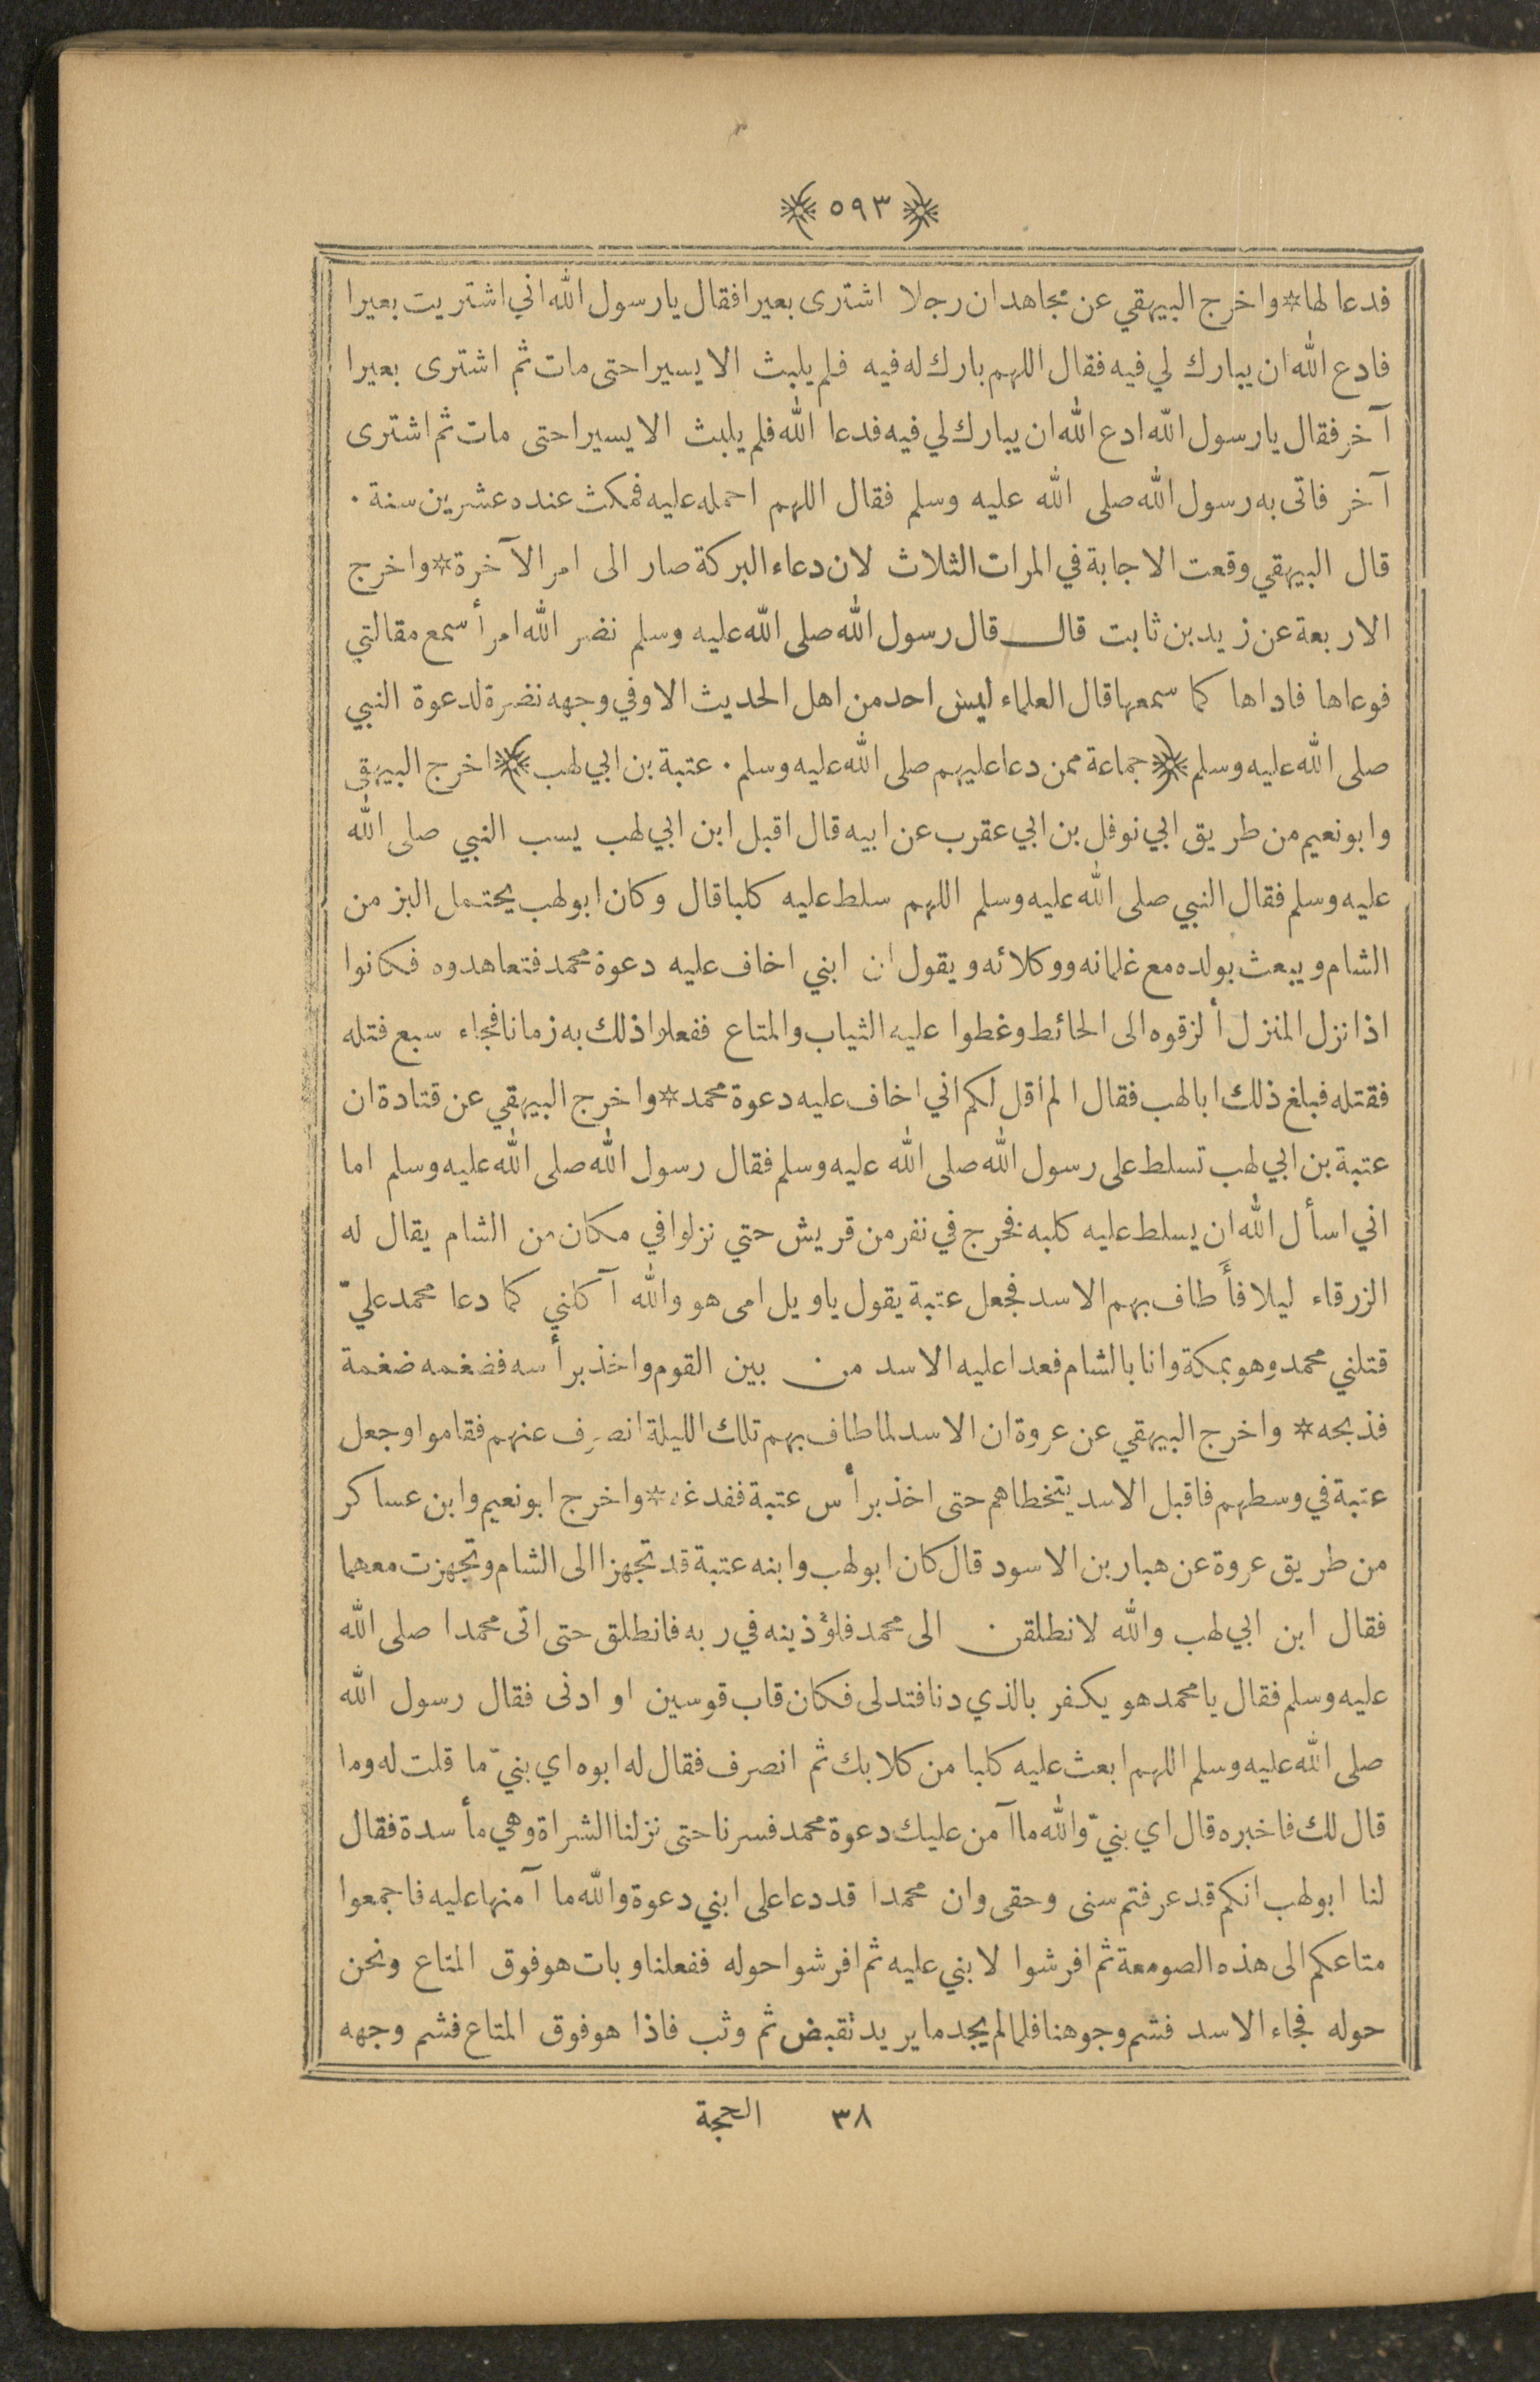 ﴿ ٥٩٣ ﴾
فدعا لها * واخرج البيهقي عن مجاهد ان رجلا اشترى بعيرا فقال يا رسول الله اني اشتريت بعيرا
فادع الله ان يبارك لي فيه فقال اللهم بارك له فيه فلم يلبث الا يسيرا حتى مات ثم اشترى بعيرا
آخر فقال يا رسول الله ادع الله ان يبارك لي فيه فدعا الله فلم يلبث الا يسيرا حتى مات ثم اشترى
آخر فاتى به رسول الله صلى الله عليه وسلم فقال اللهم احمله عليه فمكث عنده عشرين سنة .
قال البيهقي وقعت الاجابة في المرات الثلاث لان دعاء البركة صار الى امر الآخرة * واخرج
الاربعة عن زيد بن ثابت قال قال رسول الله صلى الله عليه وسلم نضر الله امرأ سمع مقالتي
فوعاها فاداها كما سمعها قال العلماء ليس احد من اهل الحديث الا وفي وجهه نضرة لدعوة النبي
صلى الله عليه وسلم ﴿ جماعة ممن دعا عليهم صلى الله عليه وسلم . عتبة بن ابي لهب ﴾ اخرج البيهقي
وابو نعيم من طريق ابي نوفل بن ابي عقرب عن ابيه قال اقبل ابن ابي لهب يسب النبي صلى الله
عليه وسلم فقال النبي صلى الله عليه وسلم اللهم سلط عليه كلبا قال وكان ابو لهب يحتمل البز من
الشام ويبعث بولده مع غلمانه ووكلائه ويقول ان ابني اخاف عليه دعوة محمد فتعاهدوه فكانوا
اذا نزل المنزل ألزقوه الى الحائط وغطوا عليه الثياب والمتاع ففعلوا ذلك به زمانا فجاء سبع فتله
فقتله فبلغ ذلك ابا لهب فقال الم اقل لكم اني اخاف عليه دعوة محمد * واخرج البيهقي عن قتادة ان
عتبة بن ابي لهب تسلط على رسول الله صلى الله عليه وسلم فقال رسول الله صلى الله عليه وسلم اما
اني اسأل الله ان يسلط عليه كلبه فخرج في نفر من قريش حتي نزلوا في مكان من الشام يقال له
الزرقاء ليلا فأَطاف بهم الاسد فجعل عتبة يقول يا ويل امى هو والله آكلني كما دعا محمد عليّ
قتلني محمد وهو بمكة وانا بالشام فعدا عليه الاسد من بين القوم واخذ برأسه فضغمه ضغمة
فذبحه * واخرج البيهقي عن عروة ان الاسد لما طاف بهم تلك الليلة انصرف عنهم فقاموا وجعل
عتبة في وسطهم فاقبل الاسد يتخطاهم حتى اخذ برأس عتبة ففدغه * واخرج ابو نعيم وابن عساكر
من طريق عروة عن هبار بن الاسود قال كان ابو لهب وابنه عتبة قد تجهزا الى الشام وتجهزت معهما
فقال ابن ابي لهب والله لانطلقن الى محمد فلؤذينه في ربه فانطلق حتى اتى محمدا صلى الله
عليه وسلم فقال يا محمد هو يكفر بالذي دنا فتدلى فكان قاب قوسين او ادنى فقال رسول الله
صلى الله عليه وسلم اللهم ابعث عليه كلبا من كلابك ثم انصرف فقال له ابوه اي بنيّ ما قلت له وما
قال لك فاخبره قال اي بنيّ والله ما آمن عليك دعوة محمد فسرنا حتى نزلنا الشراة وهي مأسدة فقال
لنا ابو لهب انكم قد عرفتم سنى وحقى وان محمدا قد دعا على ابني دعوة والله ما آمنها عليه فاجمعوا
متاعكم الى هذه الصومعة ثم افرشوا لابني عليه ثم افرشوا حوله ففعلنا وبات هو فوق المتاع ونحن
حوله فجاء الاسد فشم وجوهنا فلما لم يجد ما يريد تقبض ثم وثب فاذا هو فوق المتاع فشم وجهه
٣٨ الحجة